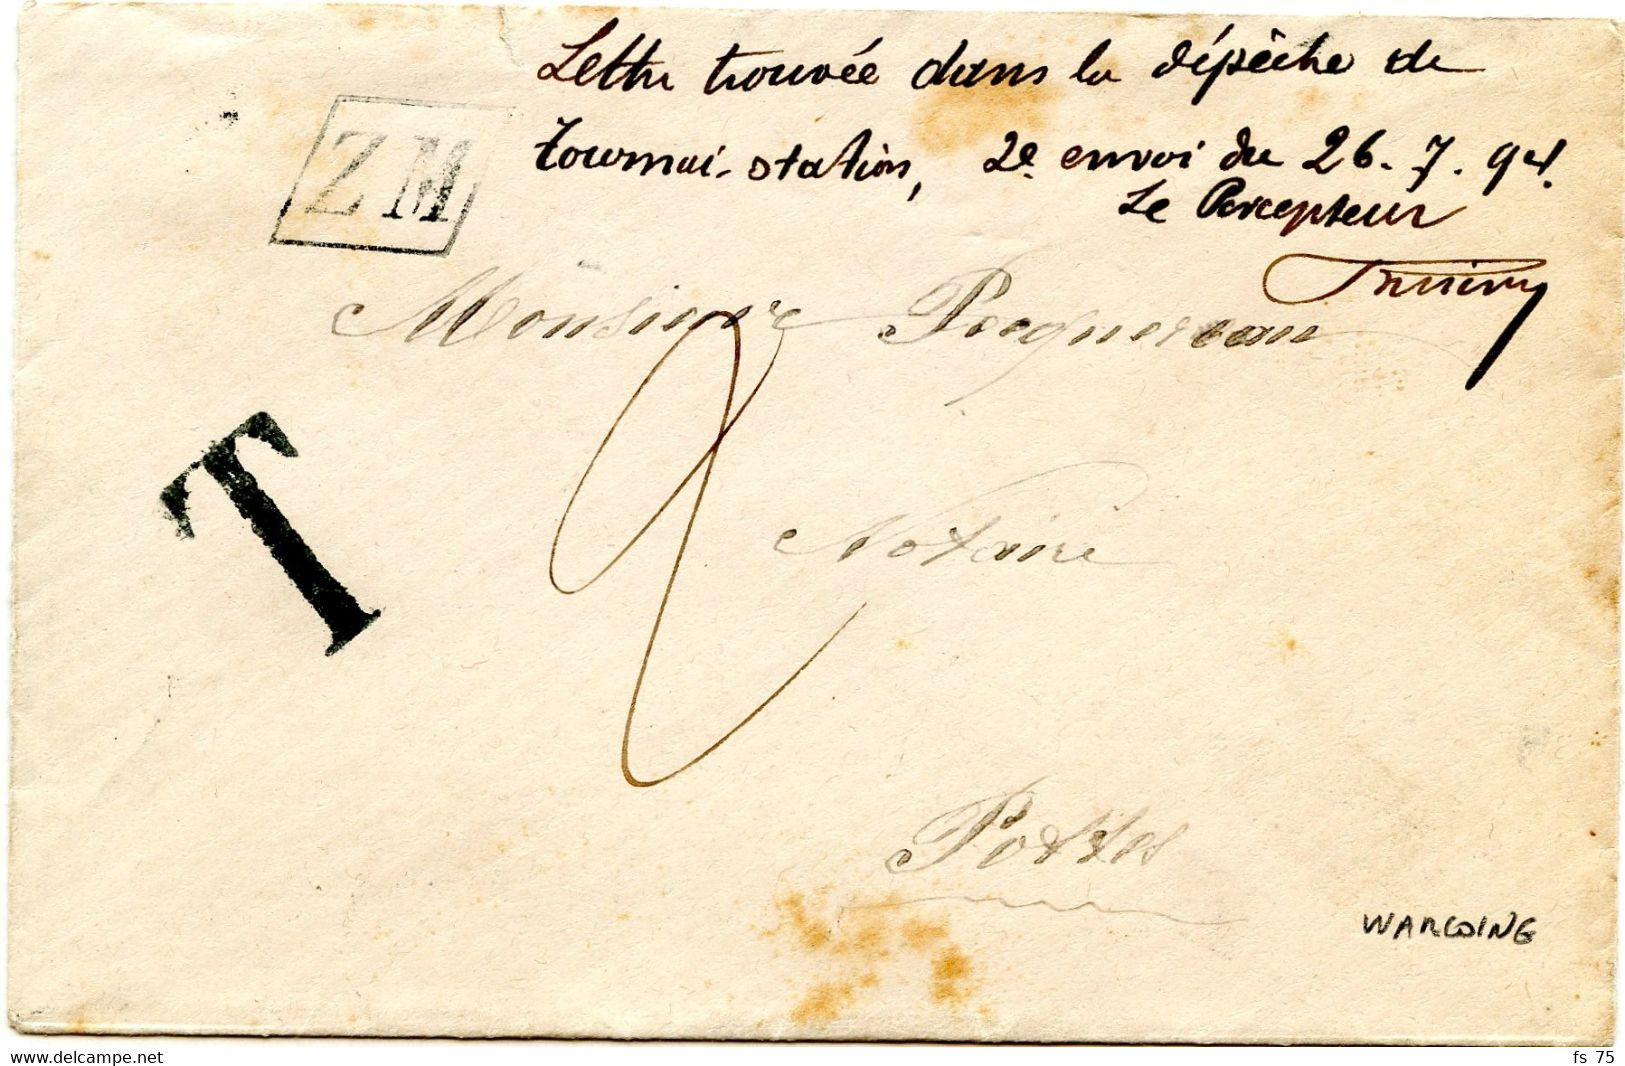 Lettre trouvée dans la dépêche de
Tournai-station, 2e envoi du 26.7.94.
Le Percepteur
ZM
Monsieur
T
Notaire
Pottes
WARCOING
delcampe.net
fs 75